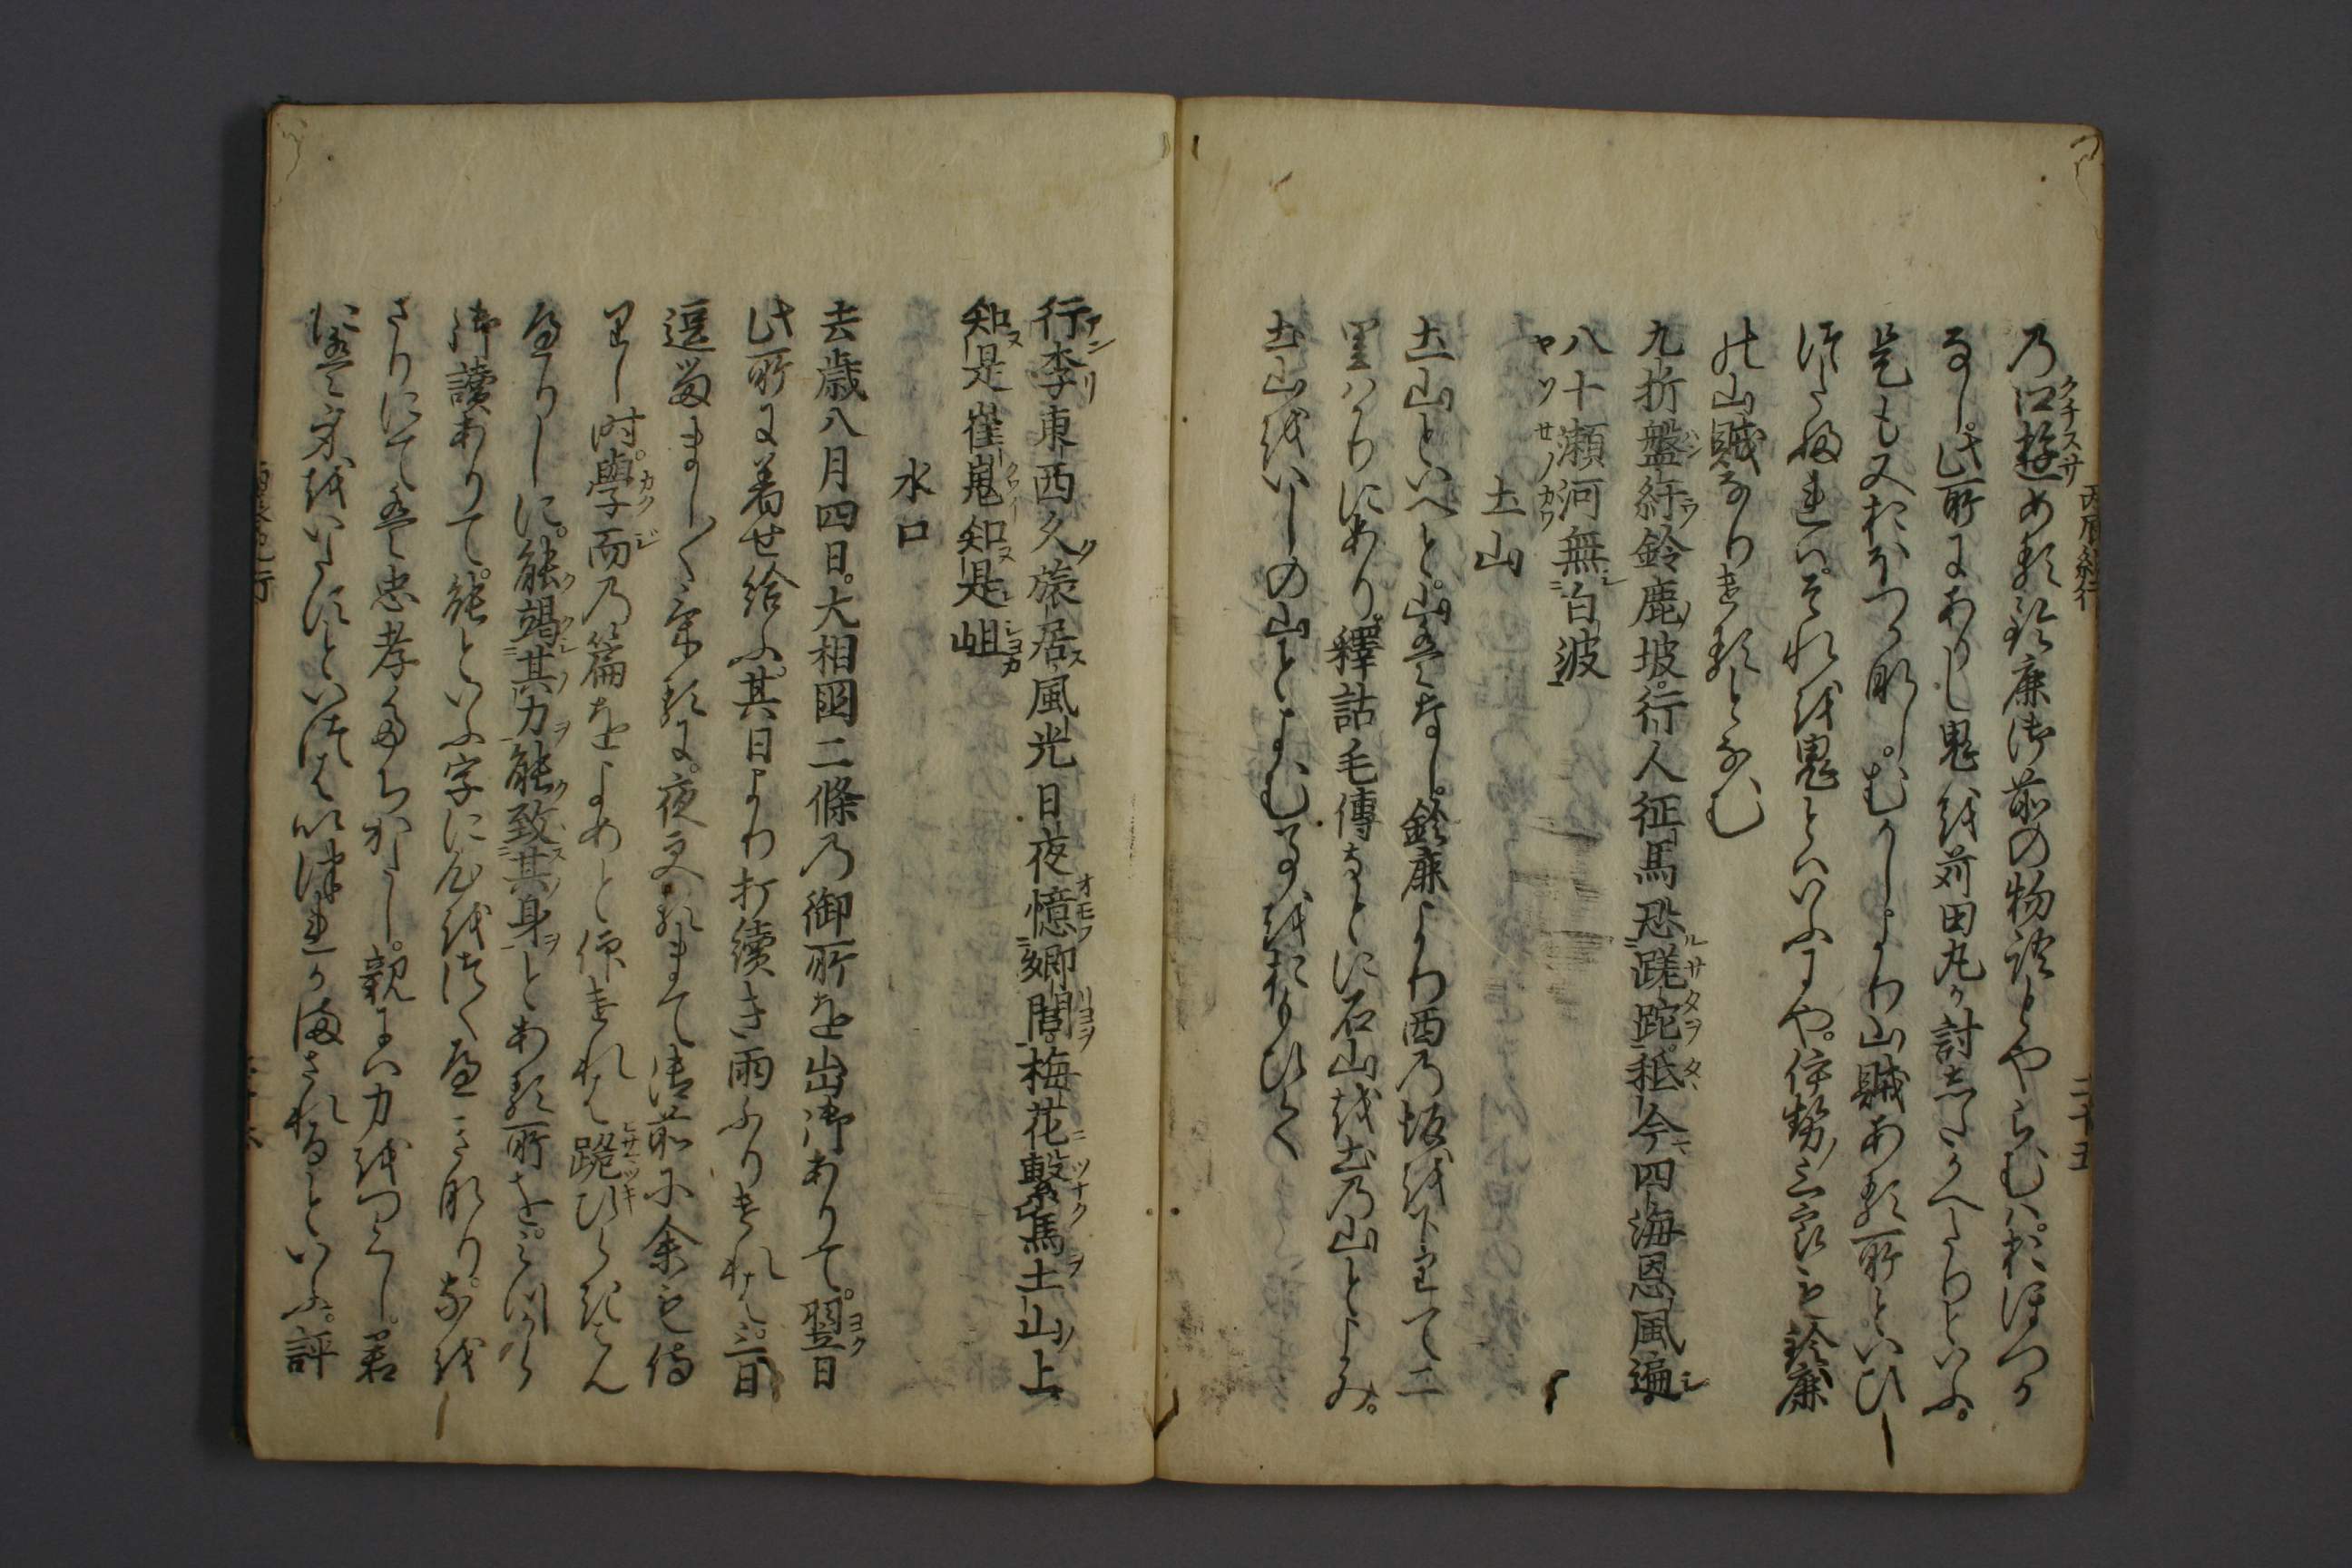 丙辰紀行　二十五
乃口遊める鈴鹿御前の物語とやらむハおほつか
なし此所にありし鬼を苅田丸か討したかへたりといふ。
是も又おほつかなし。むかしより山賊ある所といひ
つたふれハそれを鬼とハいふにや。伊勢三郎も鈴鹿
の山賊なりけるとなむ
九折盤紆鈴鹿坡。行人征馬恐蹉跎。祗今四海恩風遍。
八十瀬河無白波
土山
土山といへと山はなし。鈴鹿より西乃坂を下りて二
里ハかりにあり。釋詁毛傳なとに石山を土乃山とよみ。
土山をいしの山とよむ事をおもひて
行李東西久旅居。風光日夜憶郷閭。梅花繋馬土山上
知是崔嵬知是岨
水口
去歳八月四日。大相國二條乃御所を出御ありて。翌日
此所に着せ給ふ。其日より打續き雨ふりけれは。三日
逗留まし〱ける に。夜更るまて御前に余も侍
りし時。學而乃篇をよめと仰けれは跪ひらきけん
なりしに。能竭其力能致其身とある所を。みつから
御讀ありて。能といふ字に心をつくへきなり。なを
さりにては忠孝ともちかたし。親にハ力をつくし。君
評